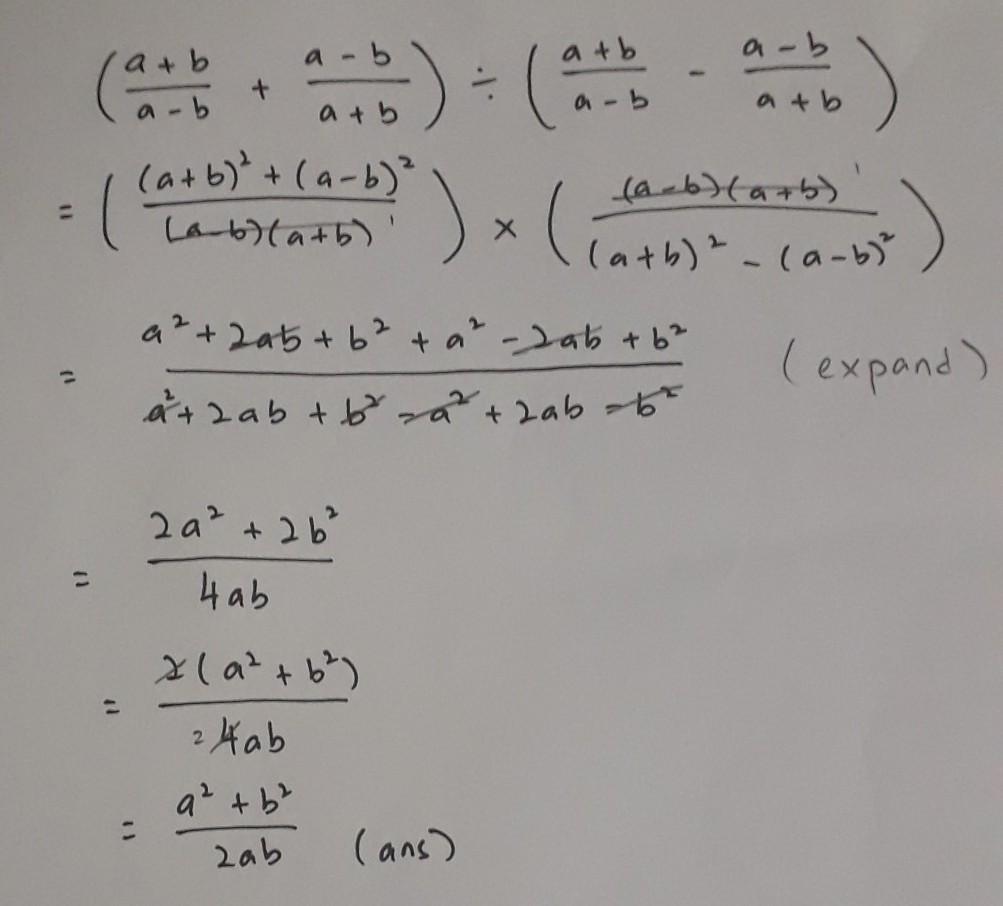 (a + b / a - b + a - b / a + b) ÷ (a + b / a - b - a - b / a + b)
= ((a+b)² + (a-b)² / (a-b)(a+b) 1) × ((a-b)(a+b) 1 / (a+b)² - (a-b)²)
= a² + 2ab + b² + a² - 2ab + b² / a² + 2ab + b² - a² + 2ab - b² (expand)
= 2a² + 2b² / 4ab
= 2(a² + b²) / 2 4ab
= a² + b² / 2ab (ans)